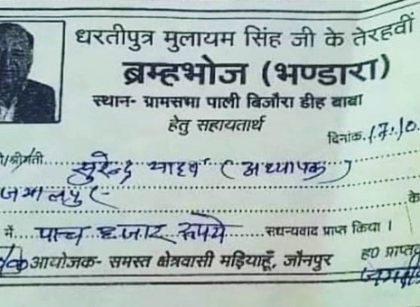 धरतीपुत्र मुलायम सिंह जी के तेरहवीं
ब्रम्हभोज (भण्डारा)
स्थान- ग्रामसभा पाली बिजौरा डीह बाबा
हेतु सहायतार्थ
दिनांक.17.10
/श्रीमती सुरेन्द्र यादव (अध्यापक)
जमालपुर
के
में. पाच हजार रूपये सधन्यवाद प्राप्त किया ।
आयोजक- समस्त क्षेत्रवासी मड़ियाहूँ, जौनपुर
ह0 प्राप्त